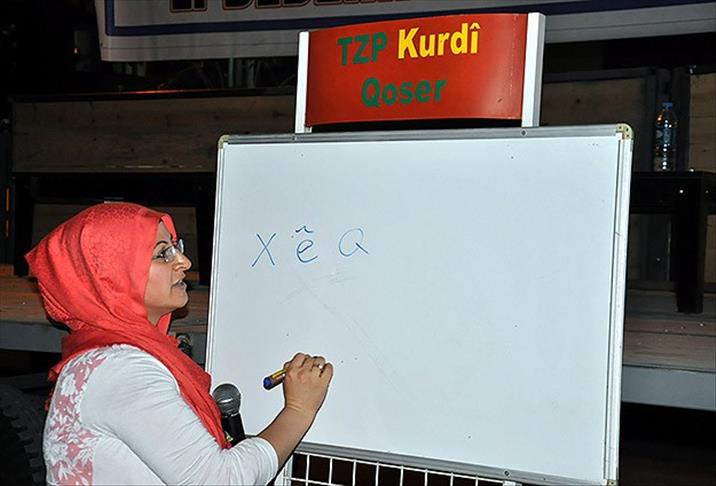 TZP Kurdî
Qoser
X ê Q